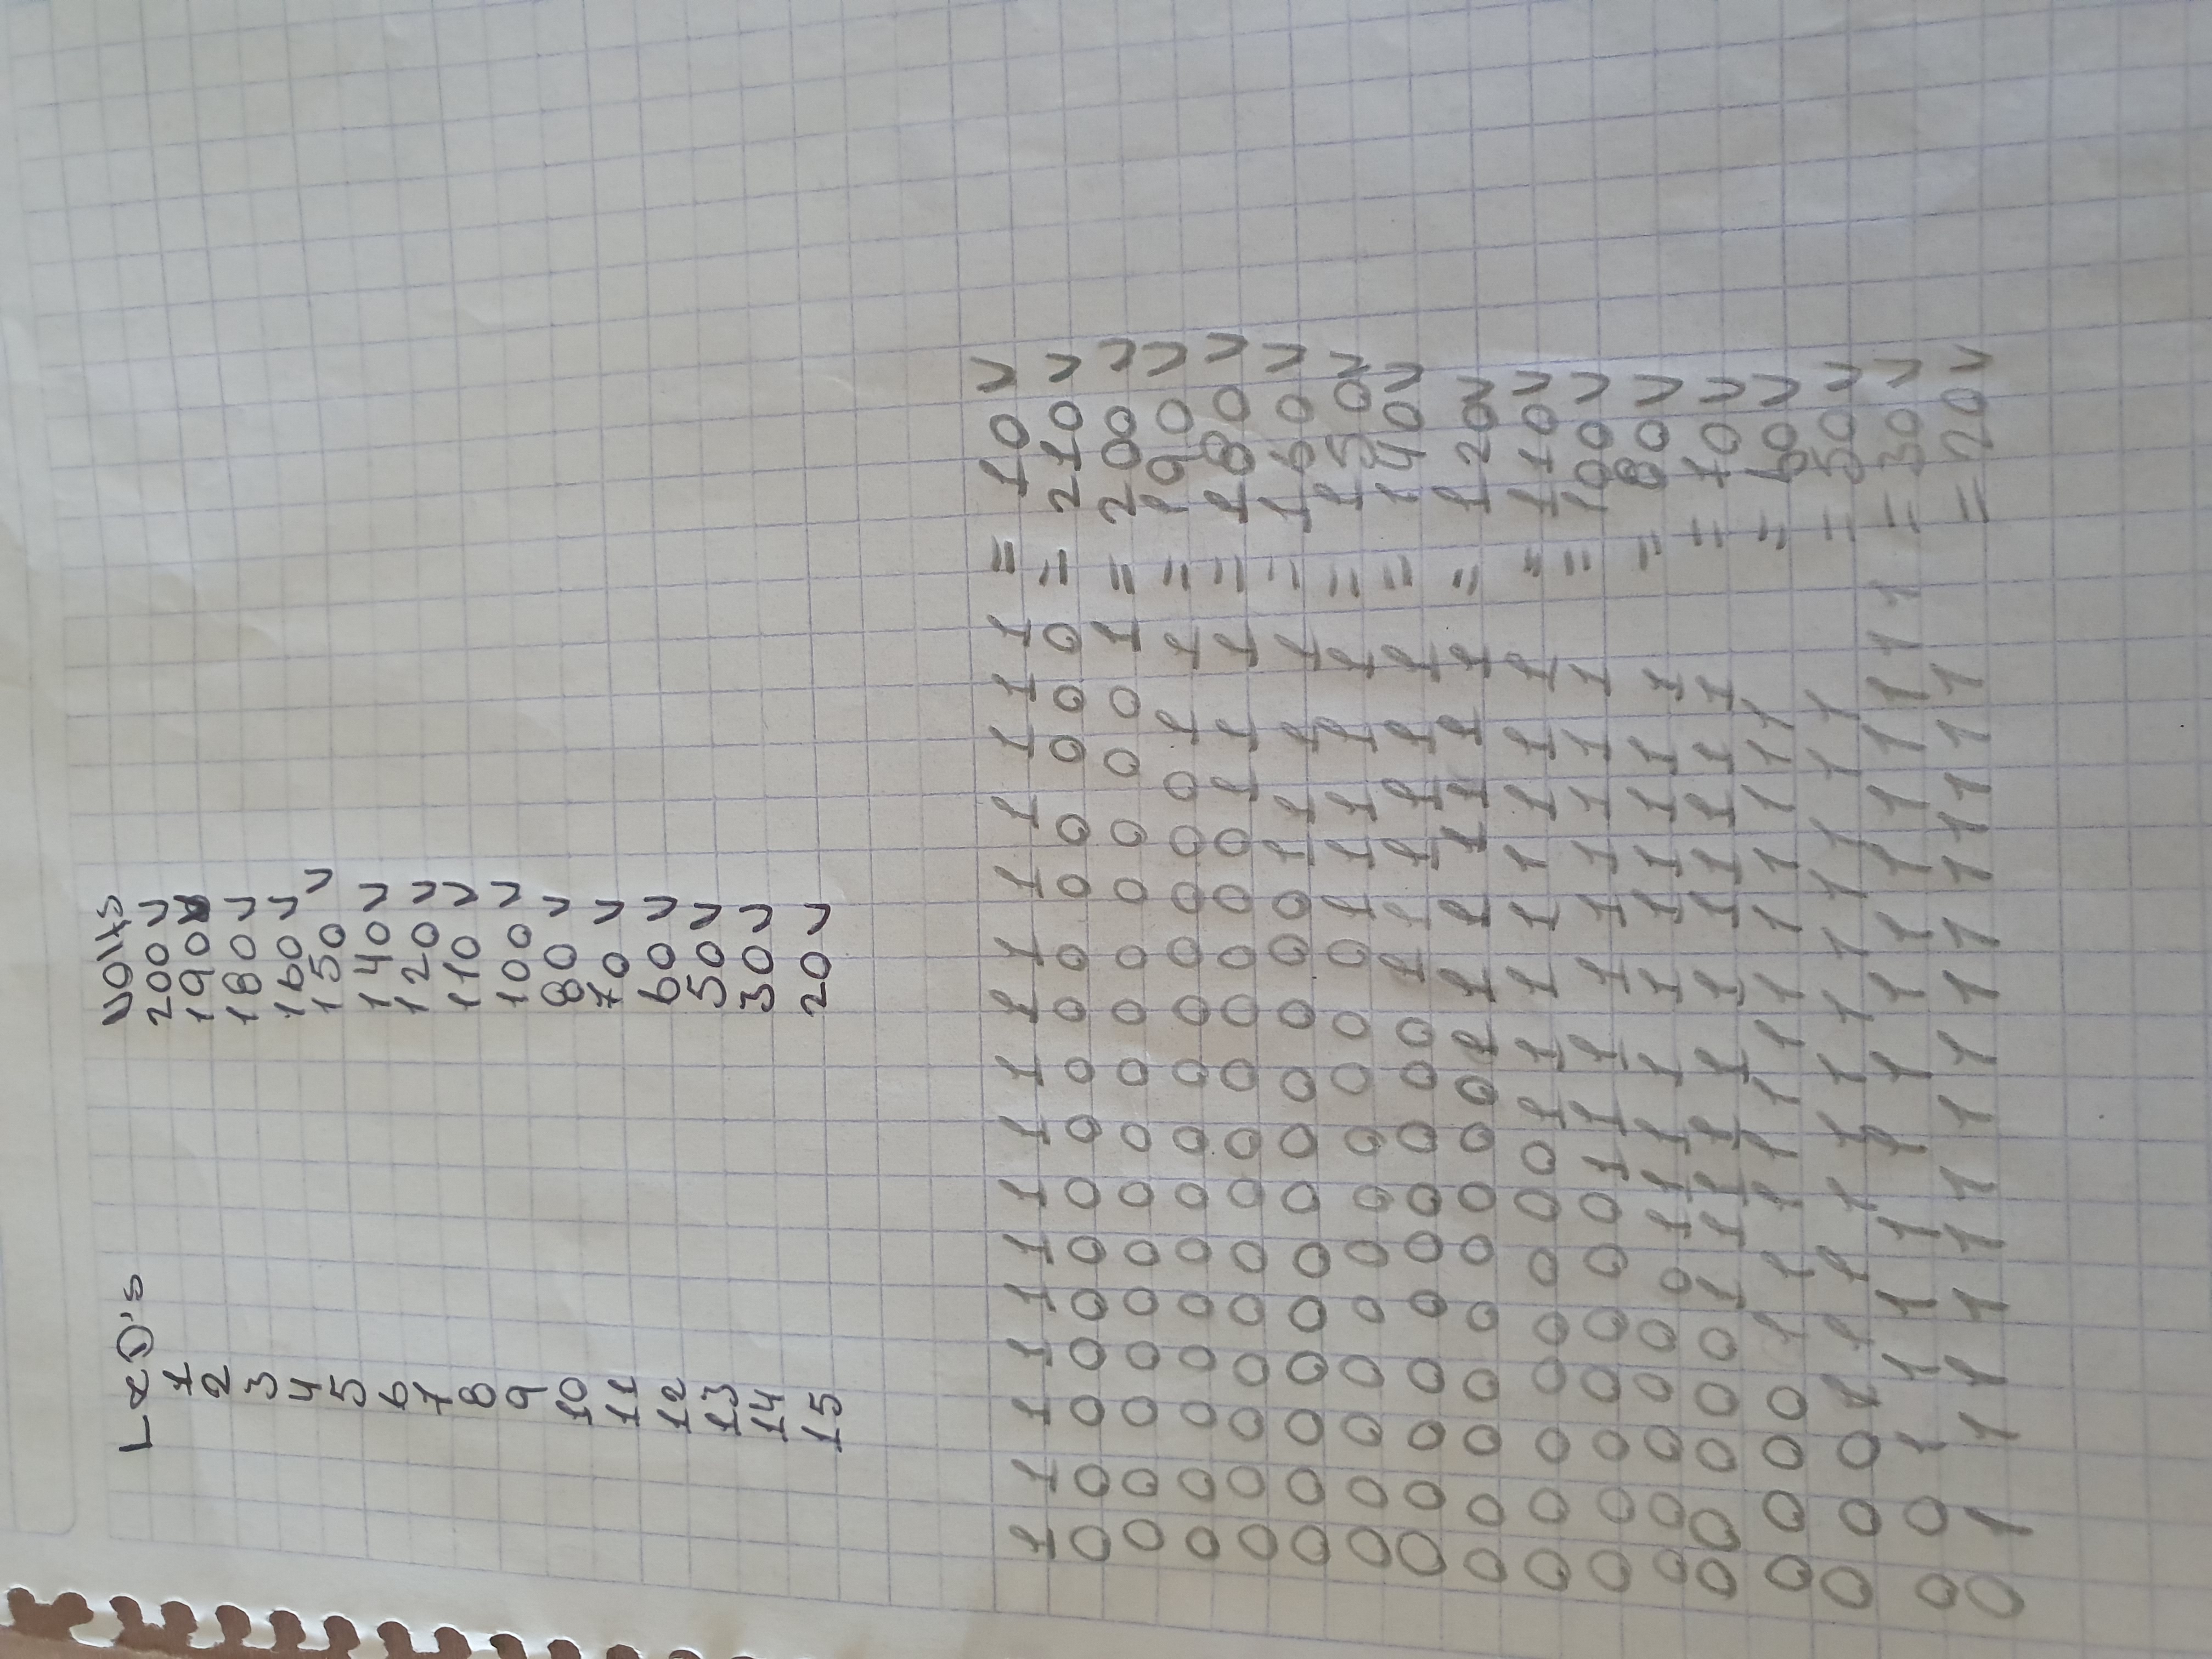 LED's Volts
1 200 V
2 190 V
3 180 V
4 160 V
5 150 V
6 140 V
7 120 V
8 110 V
9 100 V
10 80 V
11 70 V
12 60 V
13 50 V
14 30 V
15 20 V
1 1 1 1 1 1 1 1 1 1 1 1 1 1 1 1 = 10 V
0 0 0 0 0 0 0 0 0 0 0 0 0 0 0 0 = 210 V
0 0 0 0 0 0 0 0 0 0 0 0 0 0 0 1 = 200 V
0 0 0 0 0 0 0 0 0 0 0 0 0 0 1 1 = 190 V
0 0 0 0 0 0 0 0 0 0 0 0 0 1 1 1 = 180 V
0 0 0 0 0 0 0 0 0 0 0 0 1 1 1 1 = 160 V
0 0 0 0 0 0 0 0 0 0 0 1 1 1 1 1 = 150 V
0 0 0 0 0 0 0 0 0 0 1 1 1 1 1 1 = 140 V
0 0 0 0 0 0 0 0 0 1 1 1 1 1 1 1 = 120 V
0 0 0 0 0 0 0 0 1 1 1 1 1 1 1 1 = 110 V
0 0 0 0 0 0 0 1 1 1 1 1 1 1 1 1 = 100 V
0 0 0 0 0 0 1 1 1 1 1 1 1 1 1 1 = 80 V
0 0 0 0 0 1 1 1 1 1 1 1 1 1 1 1 = 70 V
0 0 0 0 1 1 1 1 1 1 1 1 1 1 1 1 = 60 V
0 0 0 1 1 1 1 1 1 1 1 1 1 1 1 = 50 V
0 0 1 1 1 1 1 1 1 1 1 1 1 1 1 1 = 30 V
0 1 1 1 1 1 1 1 1 1 1 1 1 1 1 1 = 20 V